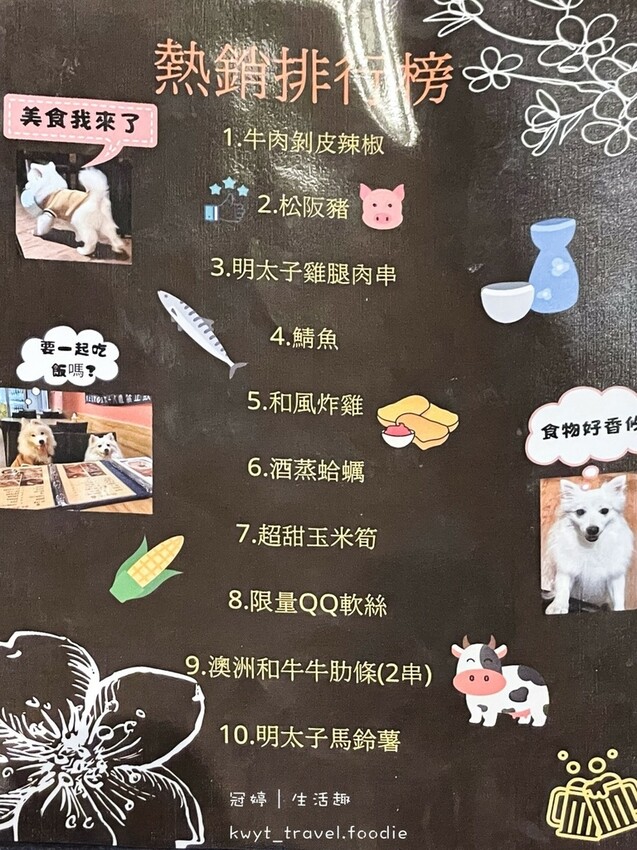 熱銷排行榜
美食我來了
1.牛肉剝皮辣椒
2.松阪豬
3.明太子雞腿肉串
4.鯖魚
要一起吃
飯嗎?
5.和風炸雞
食物好香
6.酒蒸蛤蠣
7.超甜玉米筍
8.限量QQ軟絲
9.澳洲和牛牛肋條(2串)
10.明太子馬鈴薯
冠婷｜生活趣
kwyt_travel.foodie